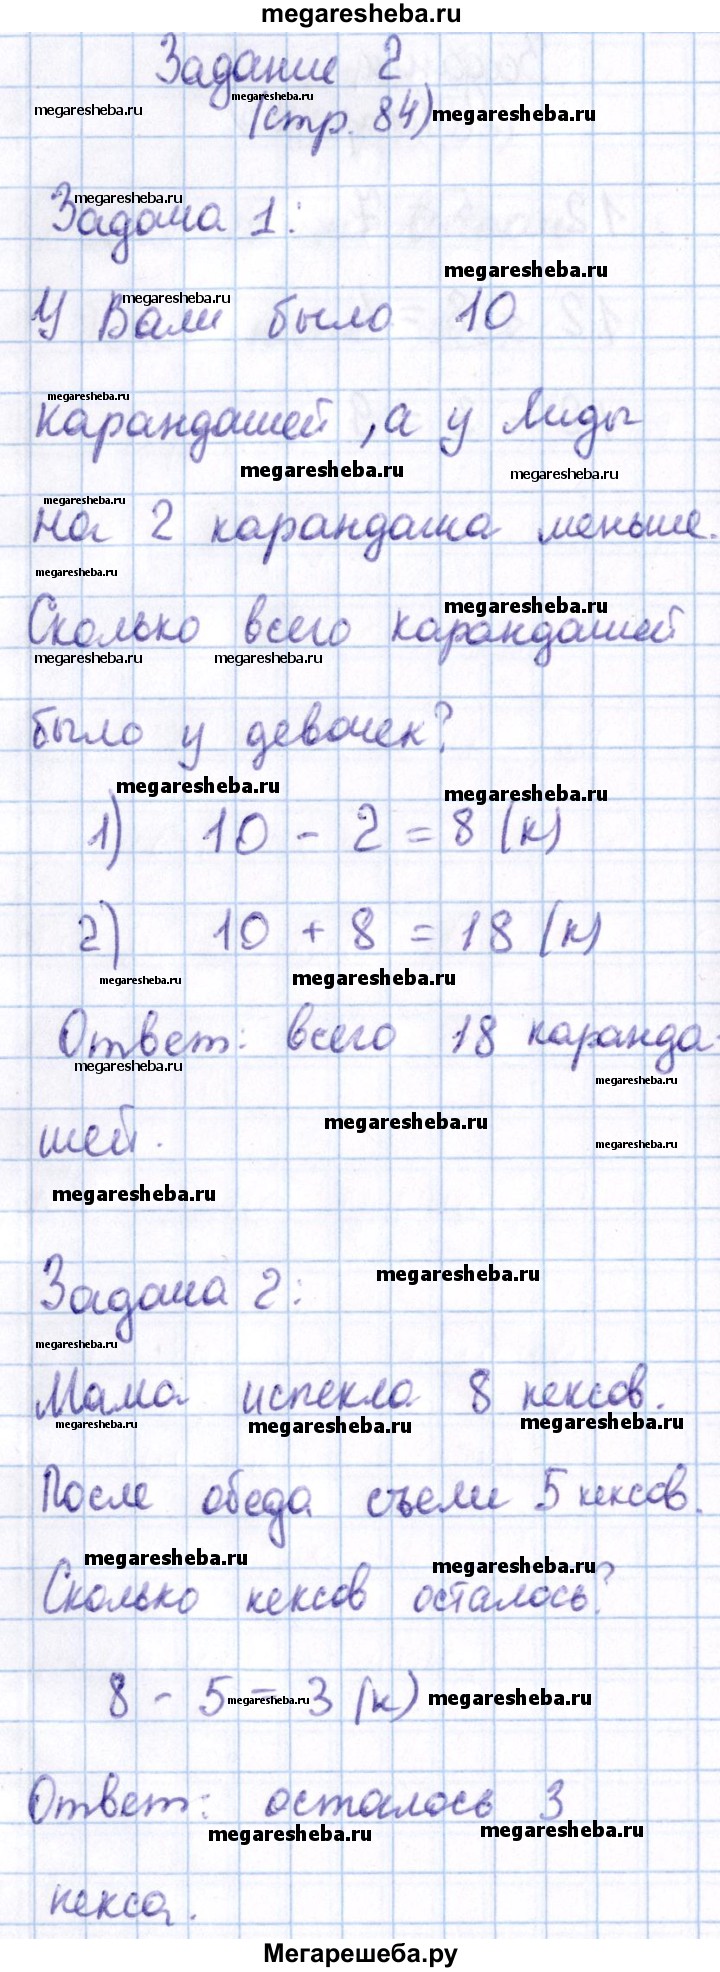 megaresheba.ru
Задание 2
megaresheba.ru megaresheba.ru
(стр. 84) megaresheba.ru
megaresheba.ru
Задача 1:
megaresheba.ru
megaresheba.ru
У Вали было 10
megaresheba.ru
карандашей, а у Лиды
megaresheba.ru megaresheba.ru
megaresheba.ru
на 2 карандаша меньше.
megaresheba.ru
megaresheba.ru
Сколько всего карандашей
megaresheba.ru megaresheba.ru
было у девочек?
megaresheba.ru megaresheba.ru
1) 10 - 2 = 8 (к)
2) 10 + 8 = 18 (к)
megaresheba.ru megaresheba.ru
Ответ: всего 18 каранда-
megaresheba.ru megaresheba.ru
шей.
megaresheba.ru megaresheba.ru
megaresheba.ru
megaresheba.ru
Задача 2:
megaresheba.ru
Мама испекла 8 кексов.
megaresheba.ru megaresheba.ru megaresheba.ru
После обеда съели 5 кексов.
megaresheba.ru megaresheba.ru
Сколько кексов осталось?
8 - 5 = 3 (к)
megaresheba.ru megaresheba.ru
Ответ: осталось 3
megaresheba.ru megaresheba.ru
кекса.
Мегарешеба.ру